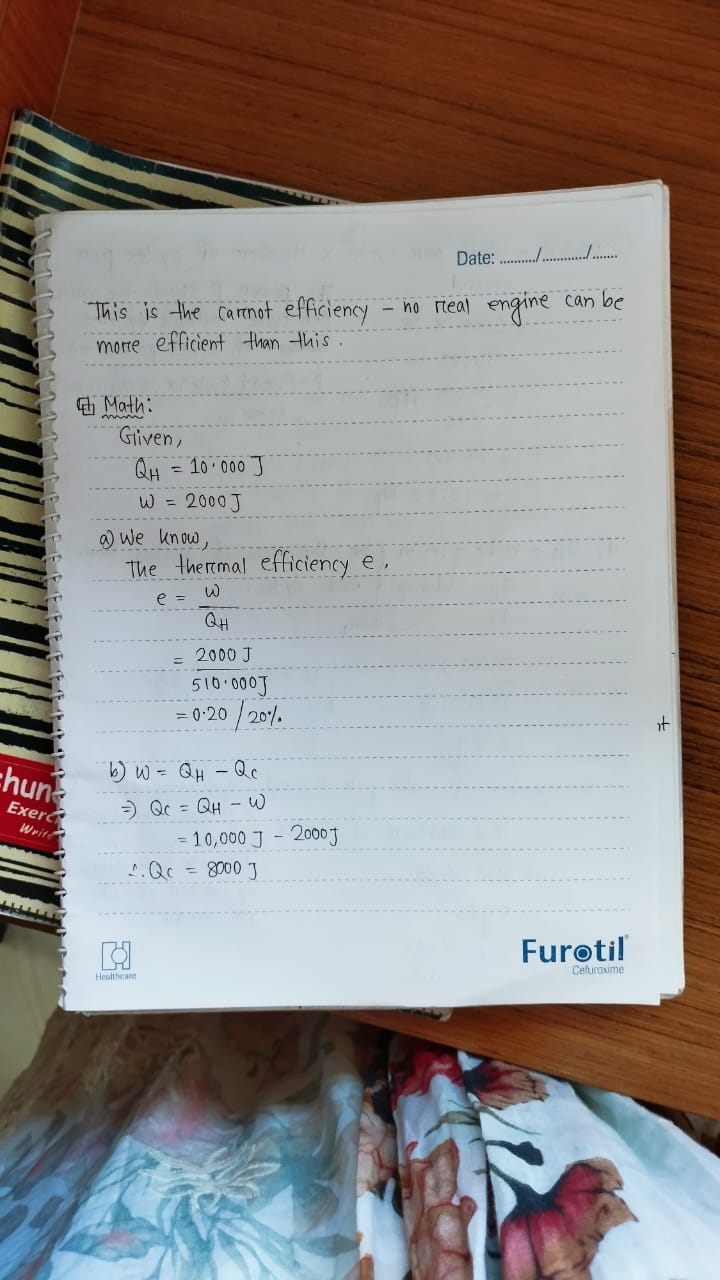 Date: ........../............/.......
This is the carnot efficiency – no real engine can be
more efficient than this.
Math:
Given,
QH = 10·000 J
W = 2000 J
a) We know,
The thermal efficiency e,
e = W
QH
= 2000 J
510·000J
= 0·20 / 20%
b) W = QH – QC
=> QC = QH – W
= 10,000 J – 2000 J
∴ QC = 8000 J
Healthcare
Furotil
Cefuroxime
Exerc
Write